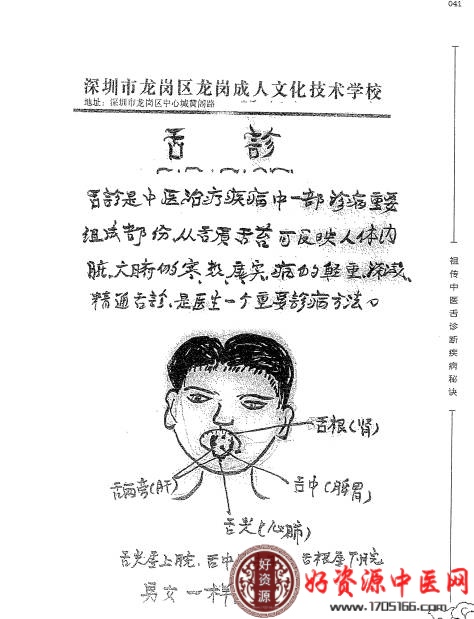 041
深圳市龙岗区龙岗成人文化技术学校
地址：深圳市龙岗区中心城黄阁路
舌診
舌診是中医治疗疾病中一部診病重要
组成部份，从舌质舌苔可反映人体内
脏，大肠的寒、热、虚实，病的轻重、
精通舌診，是医生一个重要診病方法。
祖传中医舌诊断疾病秘诀
舌根(肾)
舌两旁(肝)
舌中(脾胃)
舌尖(心肺)
舌尖属上脘，舌中
舌根属下脘
男女一样
好资源
好资源中医网
www.1705166.com